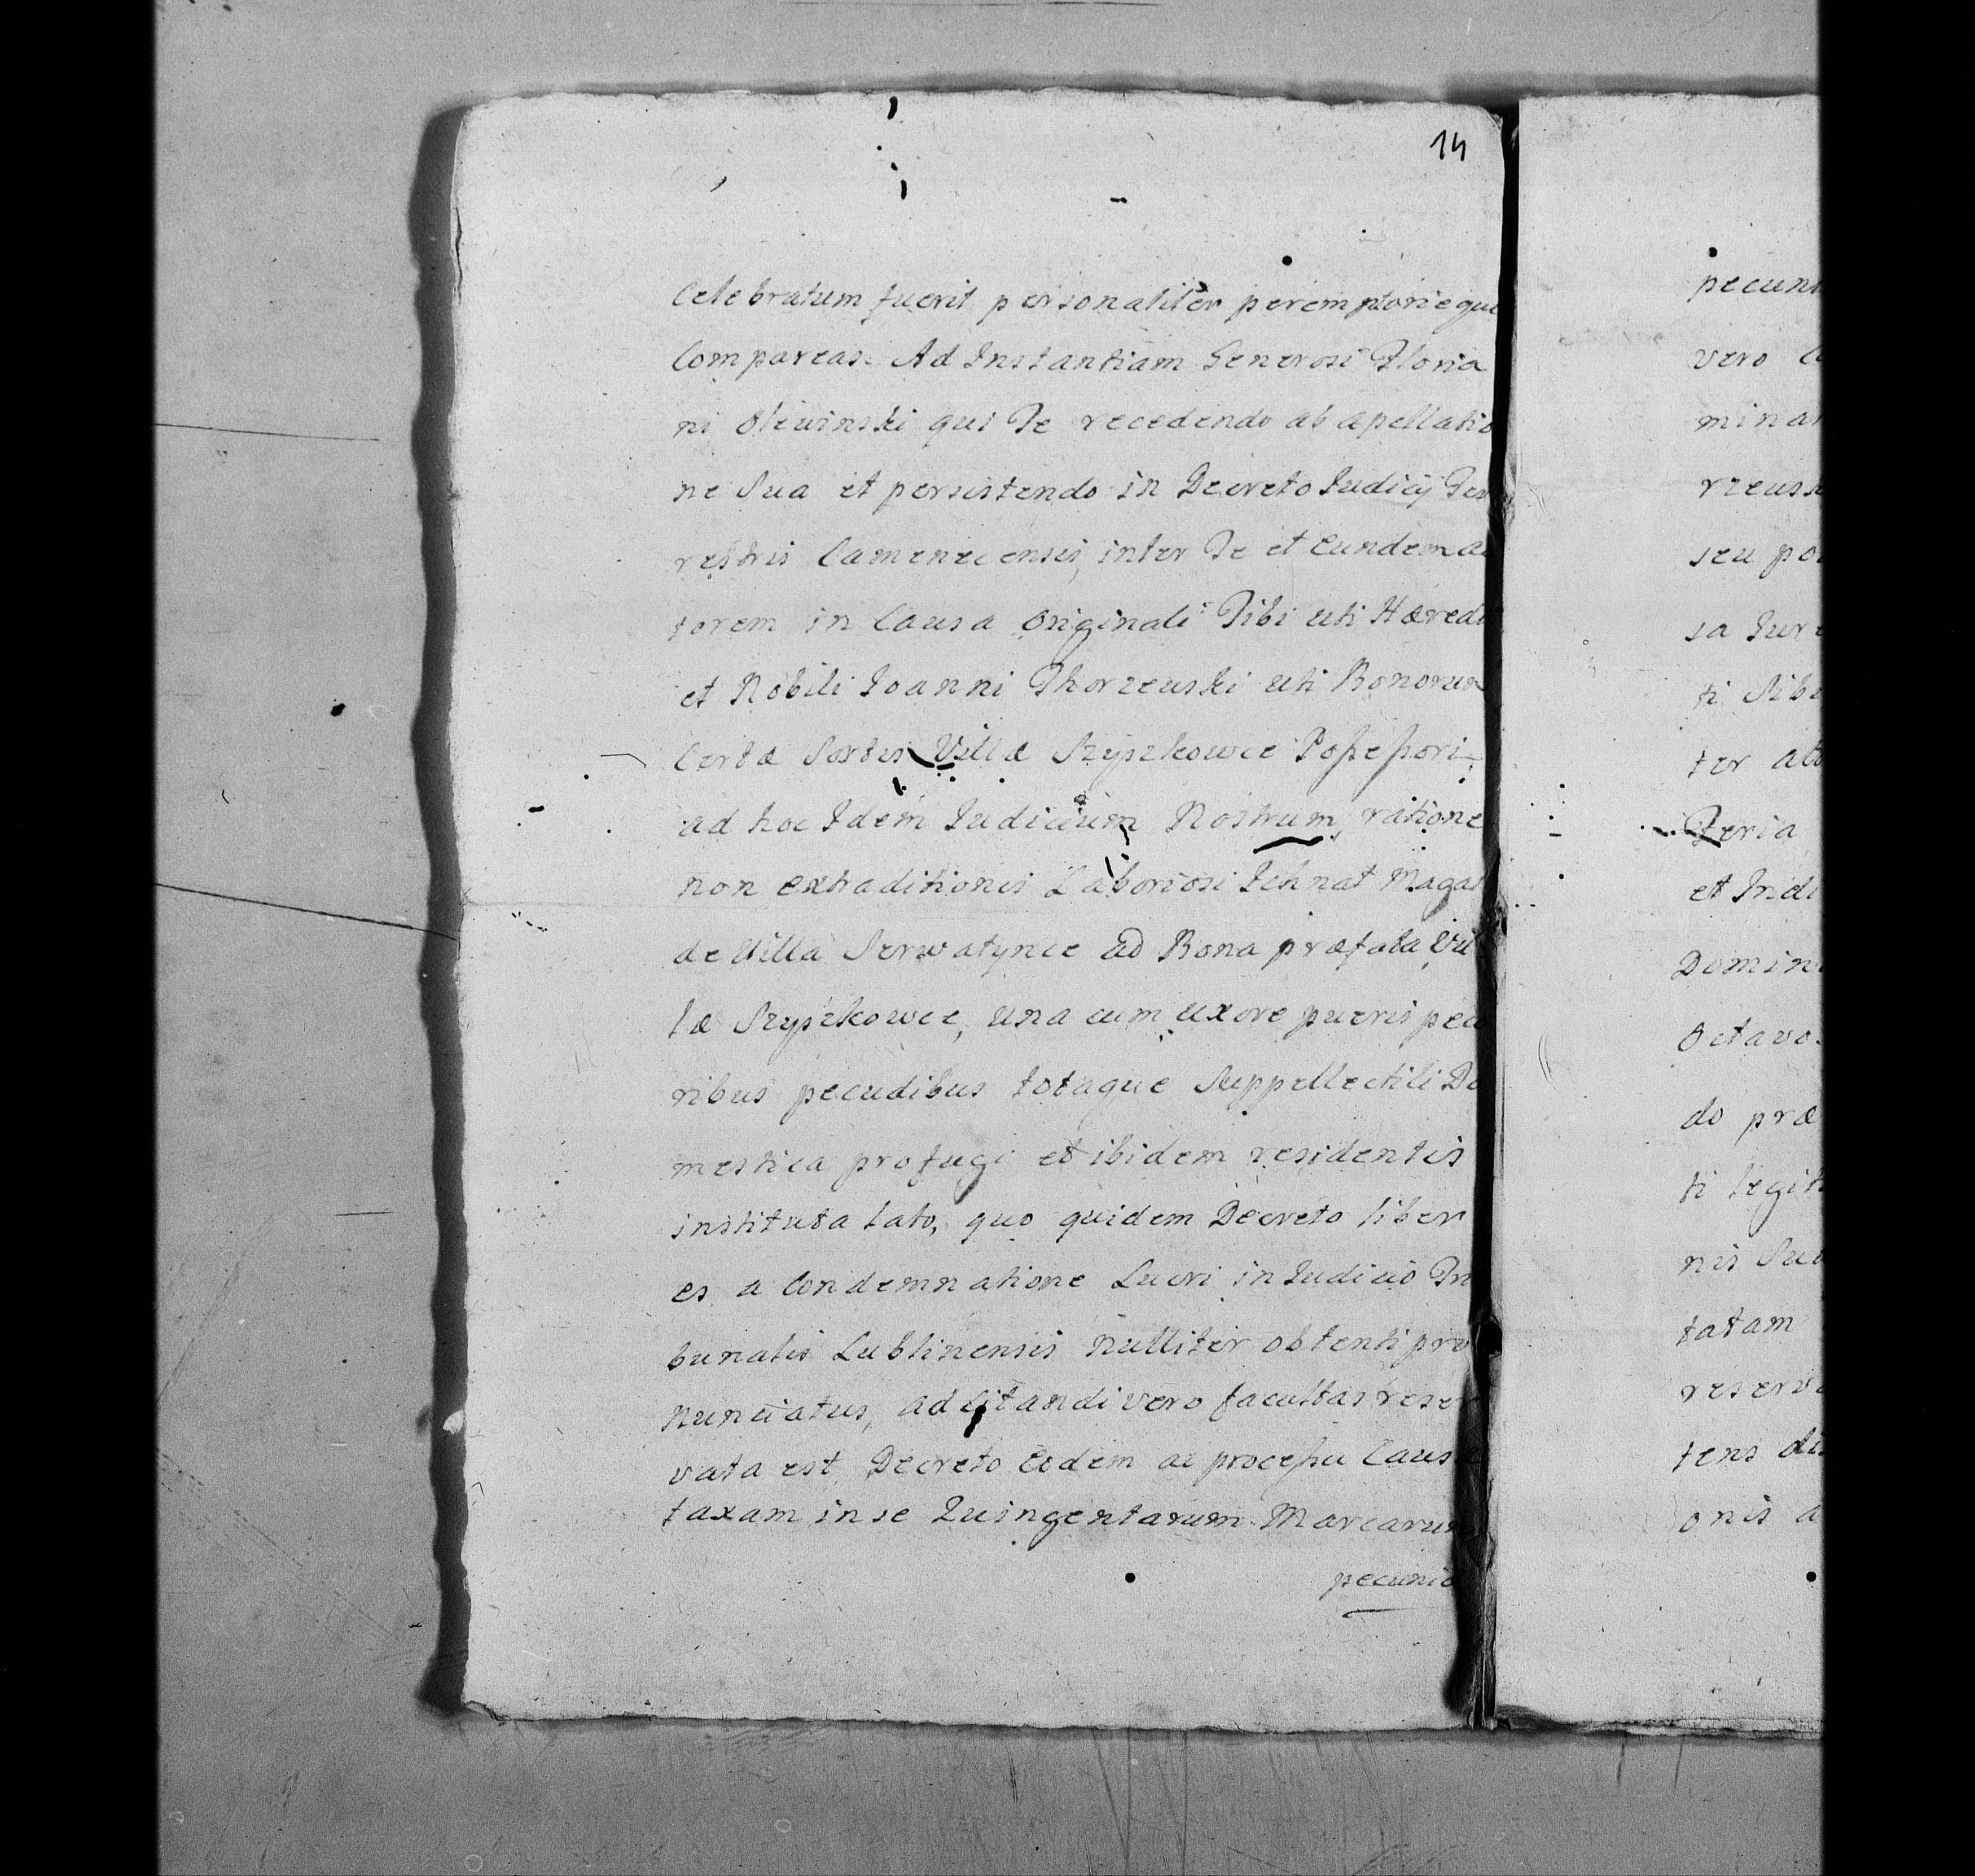 14
Celebratum fuerit personaliter peremptorieque
Compareas. Ad Instantiam Generosi Floria
ni Oliwinski qui Te recedendo ab apellatio
ne Sua et persistendo in Decreto Judicij Ter
restris Camenecensis, inter Te et Eundem ac
torem in Causa Originali Tibi uti Hæredi
et Nobili Joanni Thorzeuski uti Bonorum
Certæ Sortis Villæ Szyszkowce Possessori
ad hoc Idem Judicium Nostrum, ratione
non extraditionis Laboriosi Ichnat Magal
de Villa Serwatynce ad Bona præfata Vil
læ Szyszkowce, una cum uxore pueris peco
ribus pecudibus totaque Suppellectili Do
mestica profugi et ibidem residentis
instituta lato, quo quidem Decreto liber
es a Condemnatione Lucri in Judicio Tri
bunalis Lublinensis Nulliter obtenti pro
nunciatus, ad citandi vero facultas reser
vata est, Decreto Eodem ac processu Causæ
taxam in se Quingentarum Marcarum
pecuniæ
pecuni
vero
minar
rzeusk
seu po
sa Jur
ti Sibi
ter
Feria
et
Domin
Octava
do præ
ti legit
nis Su
tatam
reserv
tens di
onis a